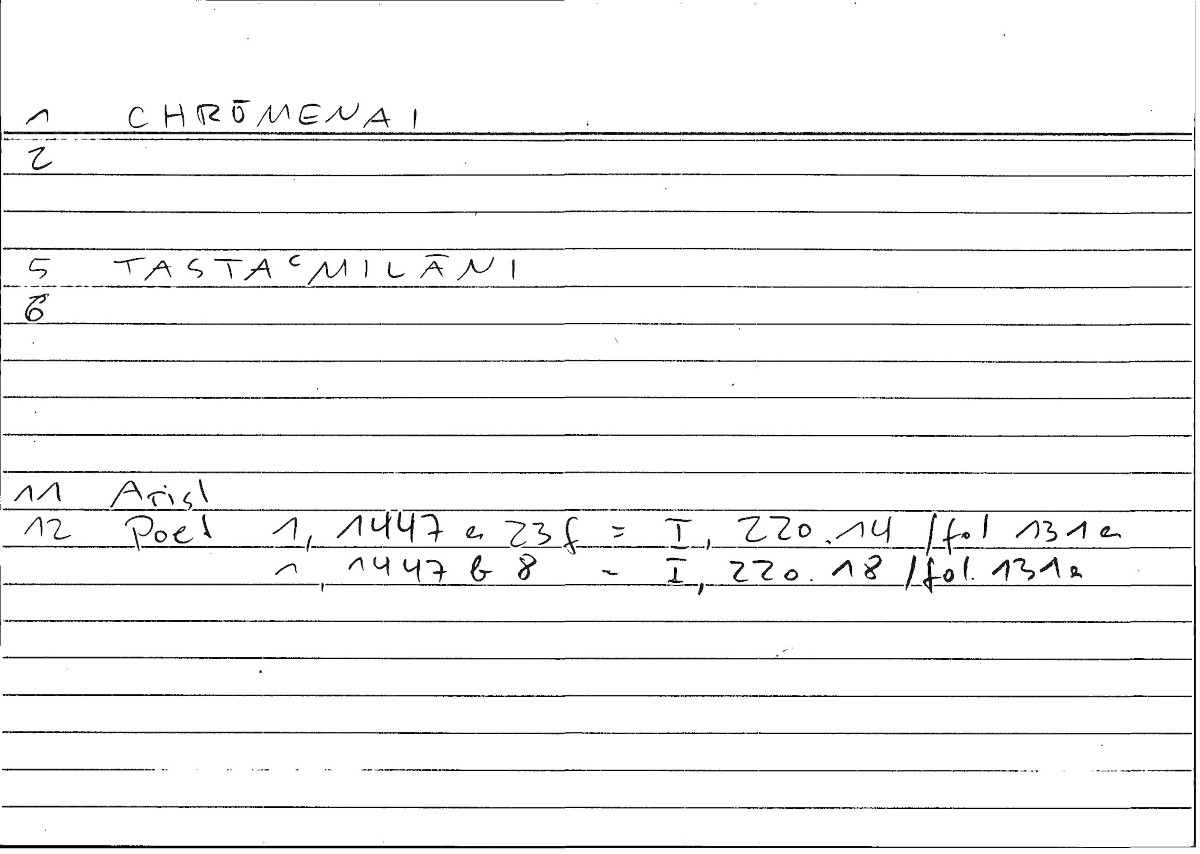 1 CHRŌMENAI
2
5 TASTAᶜMILĀNI
6
11 Arist
12 Poet 1, 1447 a 23f = I, 220.14 /fol 131a
1, 1447 b 8 = I, 220.18 /fol. 131a